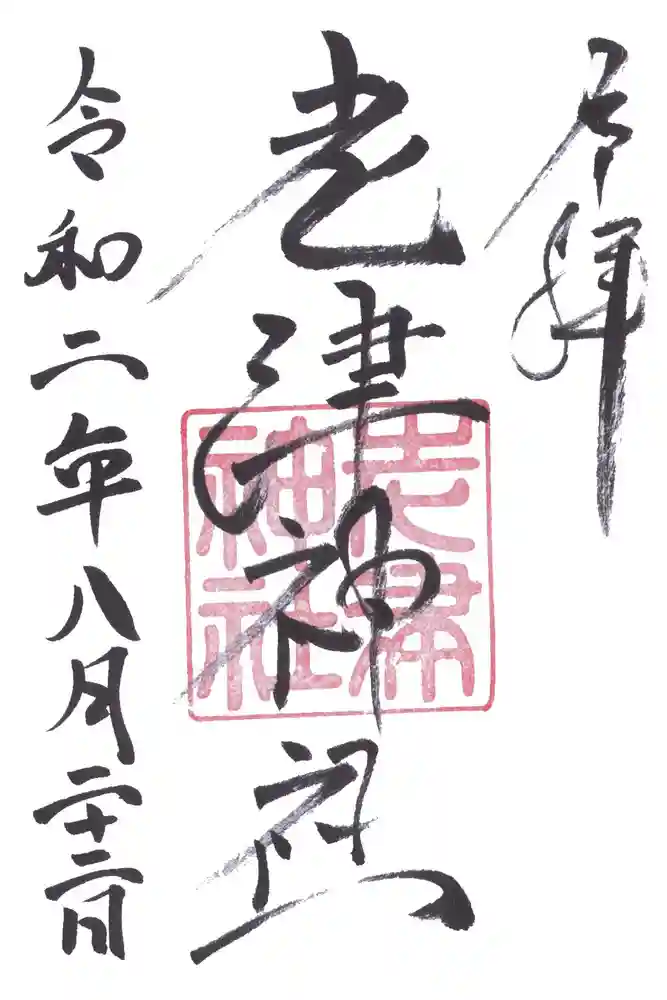 奉拝
老津神社
令和二年八月二十二日
老津
神社